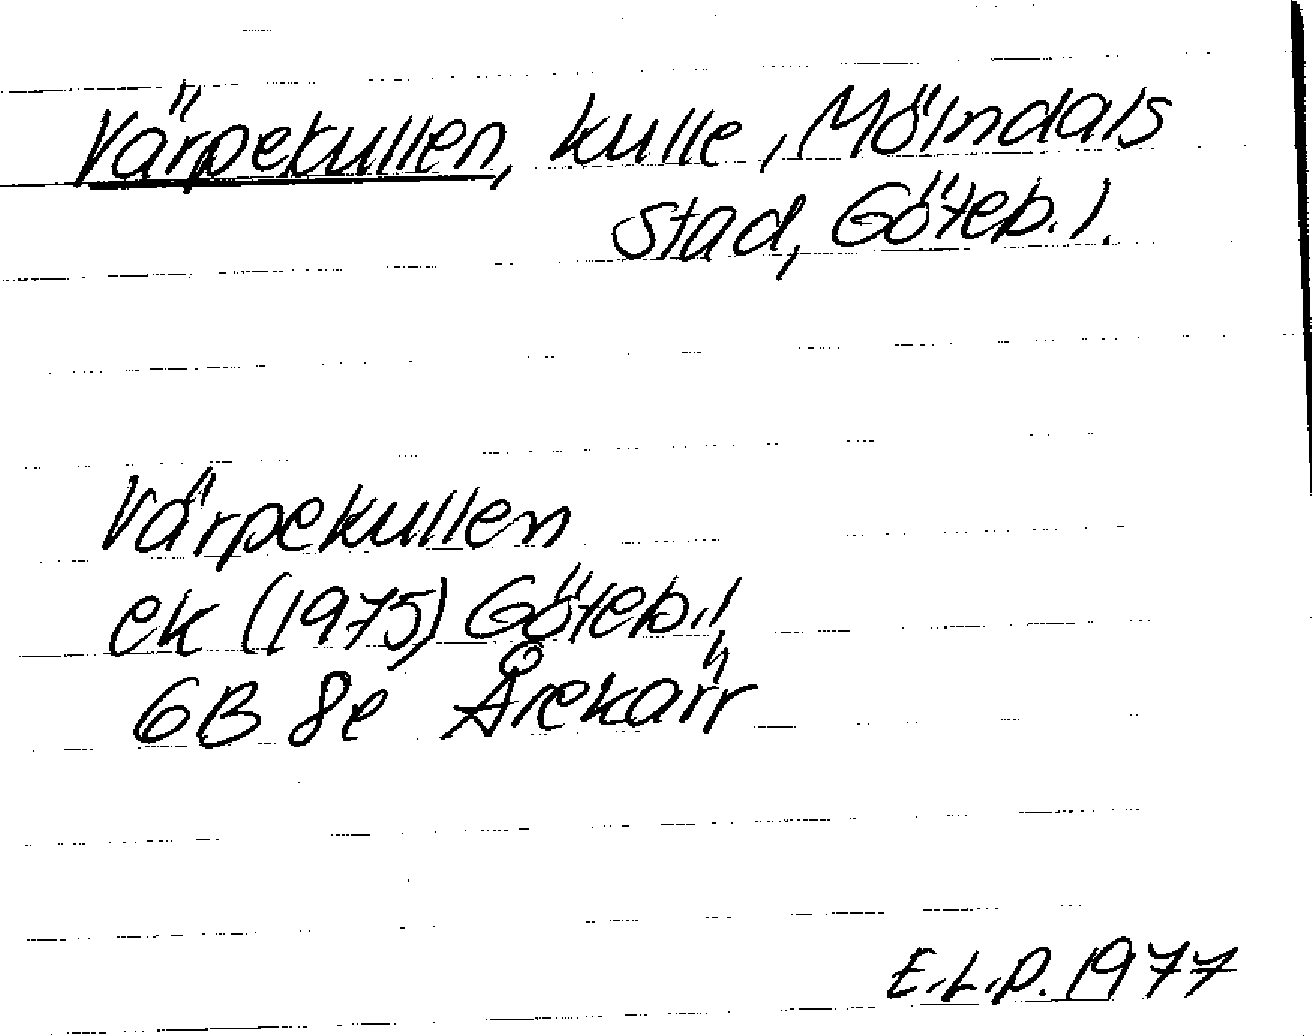 Värpekullen, kulle, Mölndals
stad, Göteb. l.
Värpekullen
ek (1975) Göteb. l.
6B 8e Årekärr
E.L.P. 1977